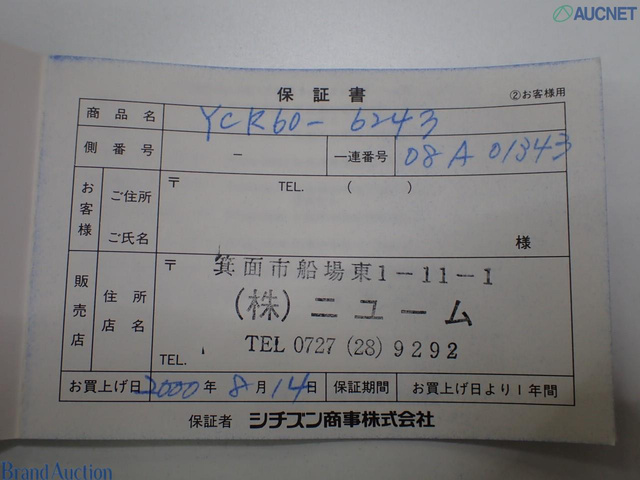 AUCNET
保証書
②お客様用
商品名 YCR60-6243
側番号 - 一連番号 08A01343
お客様
ご住所 〒 TEL. ( )
ご氏名 様
販売店
住所 〒 箕面市船場東1-11-1
店名 (株)ニューム
TEL 0727 (28) 9292
TEL.
お買上げ日 2000年 8月 14日 保証期間 お買上げ日より1年間
保証者 シチズン商事株式会社
Brand Auction